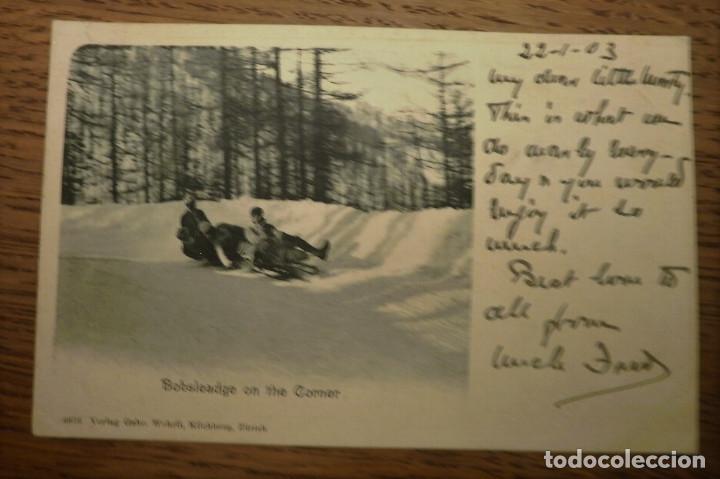 22-1-03
My dear little Monty.
This is what we
do nearly every-
day & you would
enjoy it so
much.
Best love to
all from
Uncle
Bobsleadge on the Corner
Verlag Gebr. Wehrli, Kilchberg, Zürich
todocoleccion.net